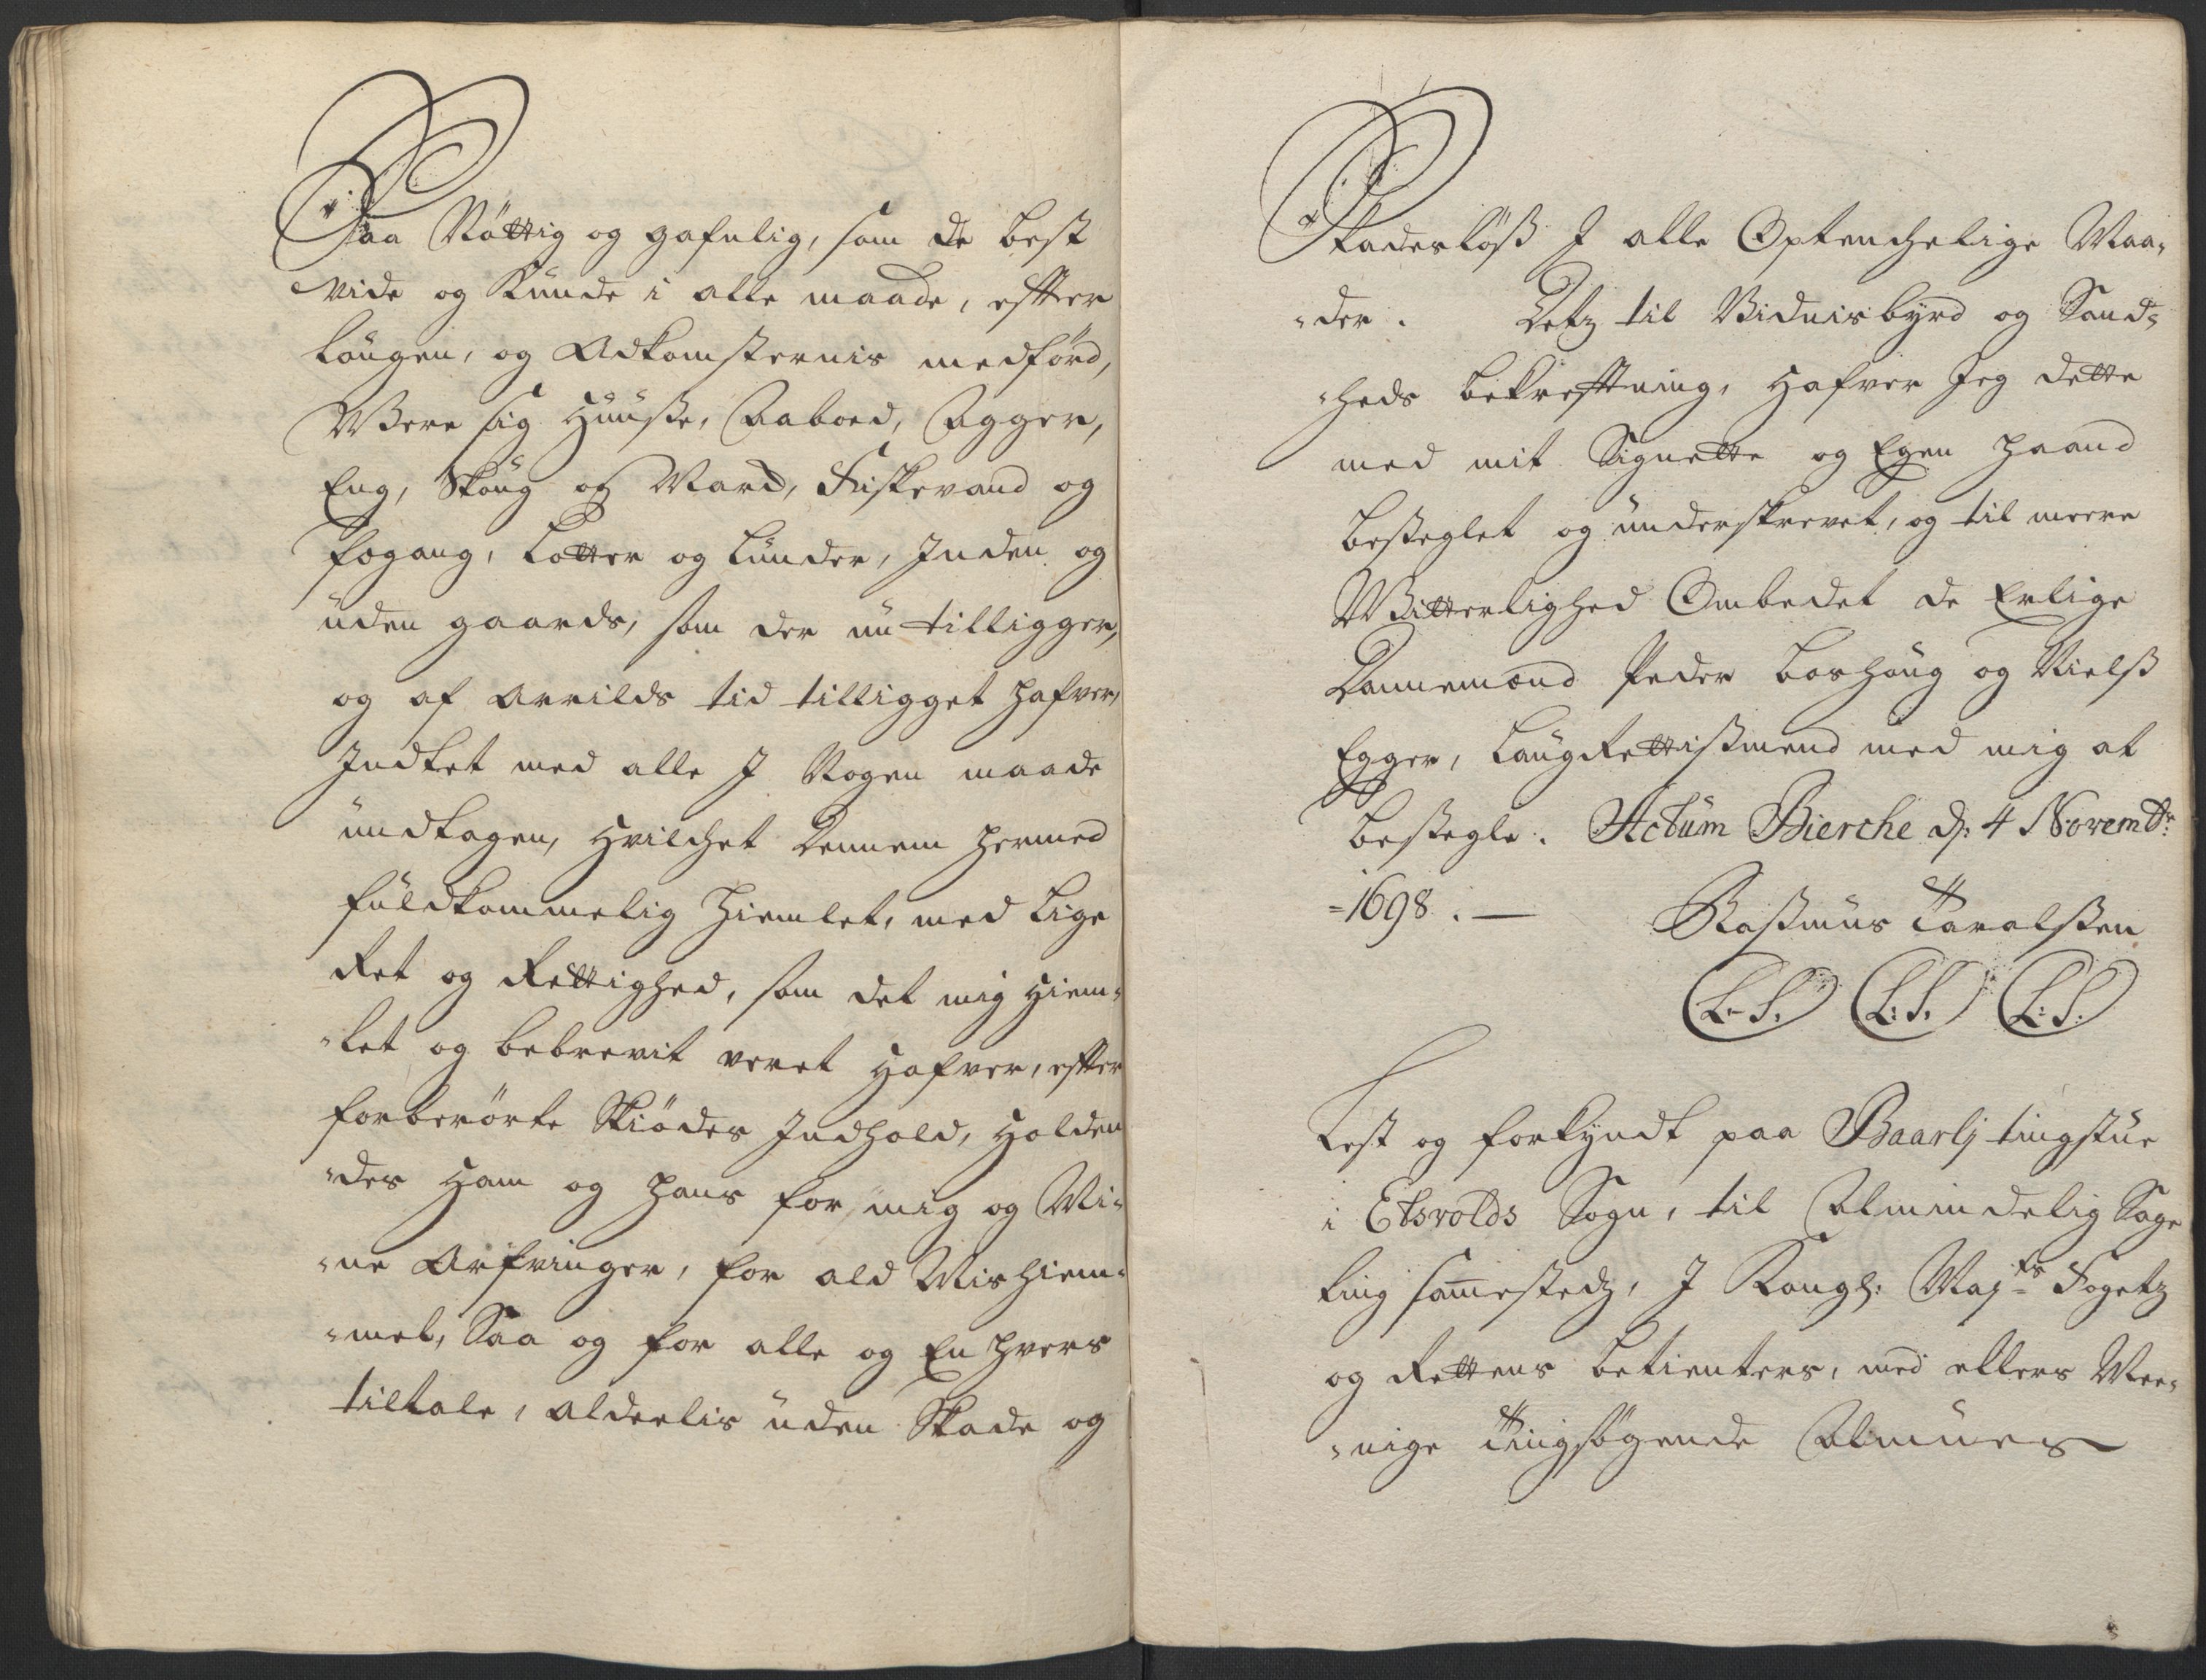 Saa Nöttig og gafnlig, som de best
vide og Kunde i alle maade, effter
Laugen, og Adkomsternis medförd,
Were sig Huuße, Aaboed, Agger,
Eng, Skoug og Marck, Fiskevand og
Fægang, Lotter og Lunder, Inden og
uden gaards, som der nu tilligger,
og af Arrilds tid tilligget hafver,
Indtet med alle I Nogen maade
undtagen, Hvilchet Dennem hermed
fuldkommelig Hiemlet, med Lige
Ret og Rettighed, som det mig Hiem-
-let og bebrevit veret Hafver, effter
forberörte Skiödes Indhold, Holden
-des Ham og Hans for mig og Mi-
-ne Arfvinger, for ald Mishiem-
-mel, Saa og for alle og En hvers
tiltale, alderlis uden Skade og
Skadeslöß I alle Optenchelige Maa-
-der. Detz til Vidnisbyrd og Sand-
-heds bekrefftning, Hafver Jeg dette
med mit Signette og Egen Haand
beseglet og underskrevet, og til meere
Witterlighed Ombedet de Erlige
Dannemænd Peder Loshoug og Nielß
Egger, Laugrettißmend med mig at
besegle. Actum Bierche d: 4 Novembr:
-1698. —
Raßmus Taralßen
L. S. L: S. L: S:
Lest og forkyndt paa Baarlj tingstue
i Edsvolds Sogn, til Almindelig Sage
ting sammestedz, I Kongl: Majts Fogetz
og Rettens betienters, med ellers Mee-
-nige Tingsögende Almues